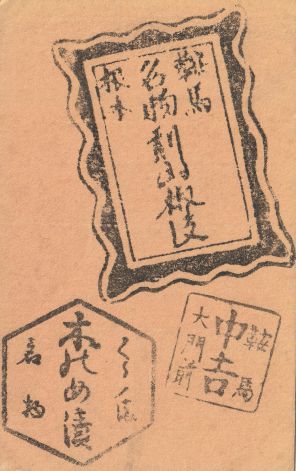 鞍馬
名物 刻山椒皮
根本
くらま
木のめ漬
名物
鞍馬
巾吉
大門前